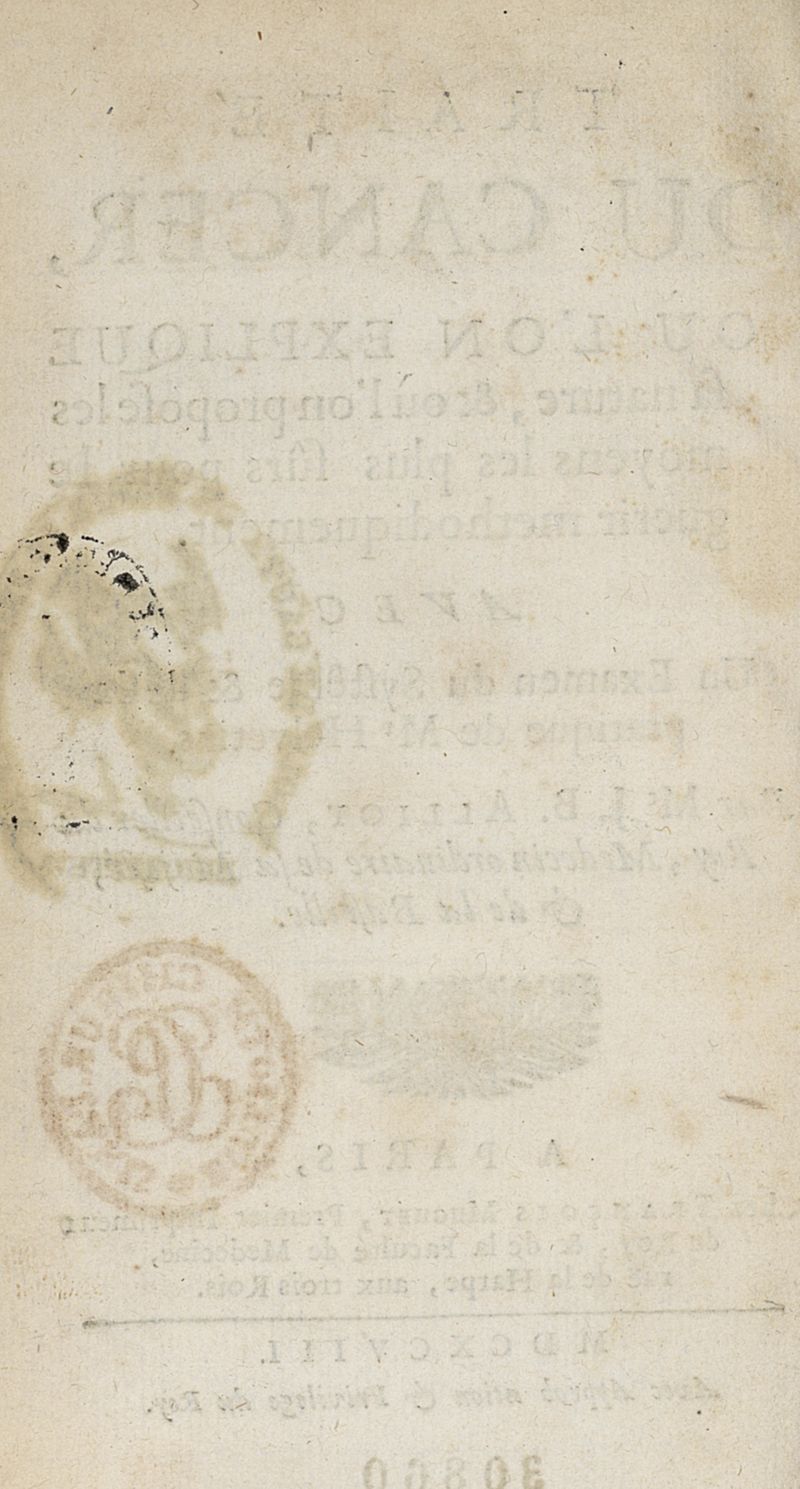 TRAITÉ
DU CANCER,
OU L'ON EXPLIQUE
sa nature, & où l'on propose les
moyens les plus sûrs pour le
guerir methodiquement
AVEC
Un Examen du Systême &
pratique de Mr Helvetius
J. B. ALLIOT, Conseiller du
Roy, Medecin ordinaire de sa Majesté,
& de la Bastille.
A PARIS,
FRANÇOIS MUGUET, Premier Imprimeur
du Roy, & de la Faculté de Medecine,
ruë de la Harpe, aux trois Rois.
MDCXCVIII.
Avec Approbation & Privilege du Roy.
30860